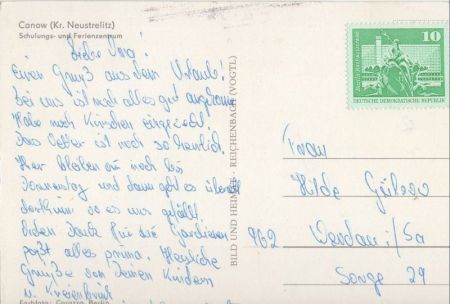 Canow (Kr. Neustrelitz)
Schulungs- und Ferienzentrum
Liebe Oma!
Einen Gruß aus dem Urlaub!
Bei uns ist noch alles gut
Habe noch Kirschen
Das Wetter ist noch so herrlich.
Hier bleiben wir noch bis
Donnerstag und dann geht es
wo es uns gefällt.
Vielen Dank für die Gardinen
paßt alles prima. Herzliche
Grüße von Deinen Kindern
u.
BILD UND HEIMAT REICHENBACH (VOGTL)
10
DEUTSCHE DEMOKRATISCHE REPUBLIK
Frau
Hilde
962 Werdau i/Sa
29
Farbfoto: Corazza, Berlin